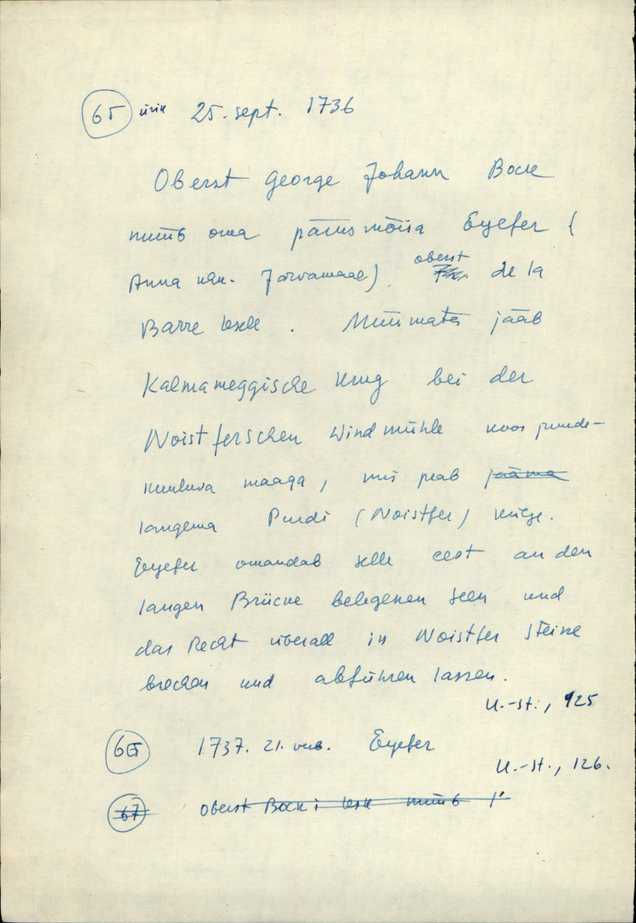 65 ürik 25. sept. 1736
Oberst George Johann Bock
müüb oma pärusmõisa Eyefer (
Anna khk. Järvamaal). oberst de la
Barre lesele. Müümata jääb
Kalmameggische Krug bei der
Noistferschen Windmühle koos juurde-
kuuluva maaga, mis peab jääma
langema Purdi (Noistfer) külge.
Eyefer omandab selle eest an den
langen Brücke belegenen seen und
das Recht überall in Noistfer Steine
brechen und abführen lassen.
U.-st., 125
66 1737. 21. veb. Eyefer
U.-st., 126.
67 Oberst Bock'i lesk müüb